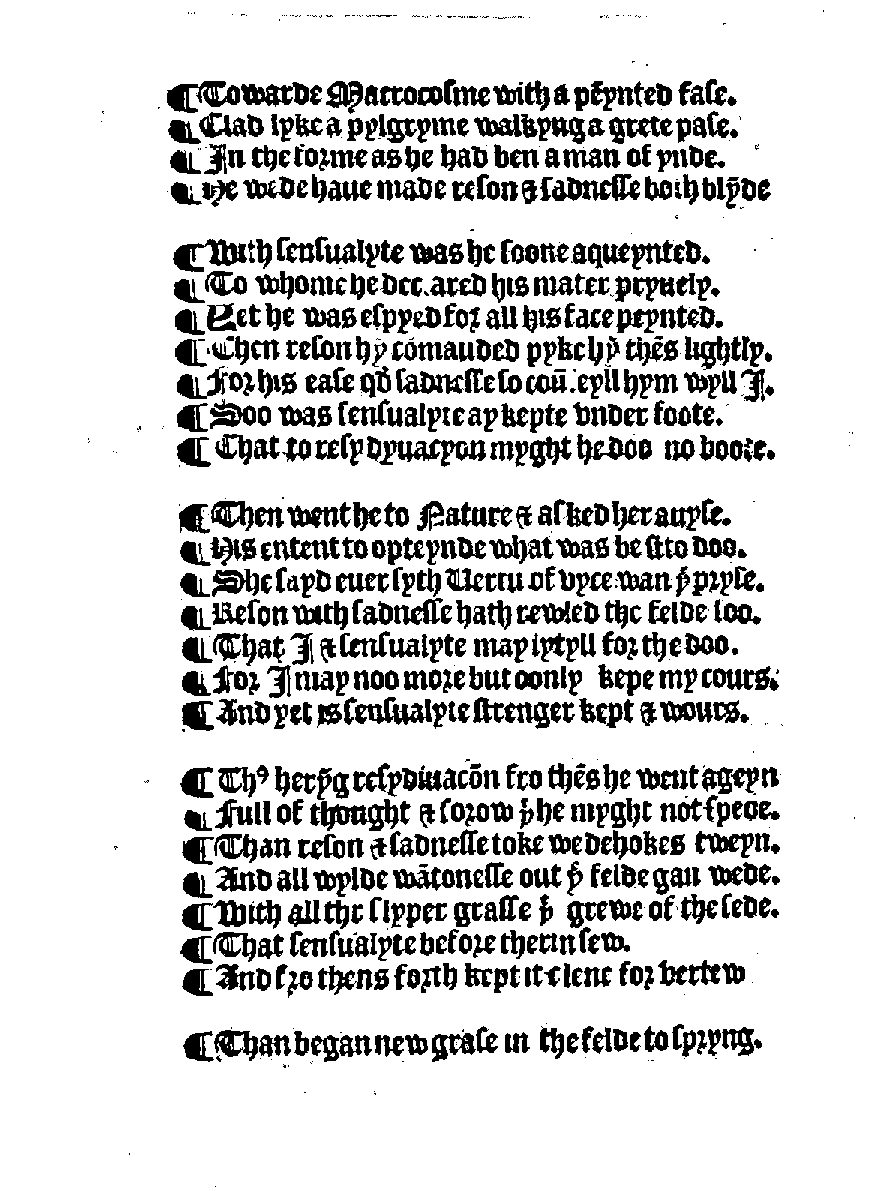 ¶ Towarde Macrocosme with a peynted fase.
¶ Clad lyke a pylgryme walkyng a grete pase.
¶ In the forme as he had ben a man of ynde.
¶ He wede haue made reson & sadnesse both blȳde

¶ With sensualyte was he soone aqueynted.
¶ To whome he declared his mater pryuely.
¶ Yet he was espyed for all his face peynted.
¶ Then reson hȳ cōmauded pyke hȳ thēs lightly.
¶ For his ease qd̄ sadnesse so coūseyll hym wyll I.
¶ Soo was sensualyte ay kepte vnder foote.
¶ That to resydyuacyon myght he doo no boote.

¶ Then went he to Nature & asked her auyse.
¶ His entent to opteynde what was best to doo.
¶ She sayd euer syth Vertu of vyce wan þͤ pryse.
¶ Reson with sadnesse hath rewled the felde soo.
¶ That I & sensualyte may lytyll for the doo.
¶ For I may noo more but oonly kepe my cours.
¶ And yet is sensualyte strenger kept & wours.

¶ Thꝰ herȳg resydiuacōn fro thēs he went ageyn
¶ Full of thought & sorow þͭ he myght not spede.
¶ Than reson & sadnesse toke wedehokes tweyn.
¶ And all wylde wātonesse out þͤ felde gan wede.
¶ With all the slypper grasse þͭ grewe of the sede.
¶ That sensualyte before therin sew.
¶ And fro thens forth kept it clene for vertew

¶ Than began new grase in the felde to spryng.